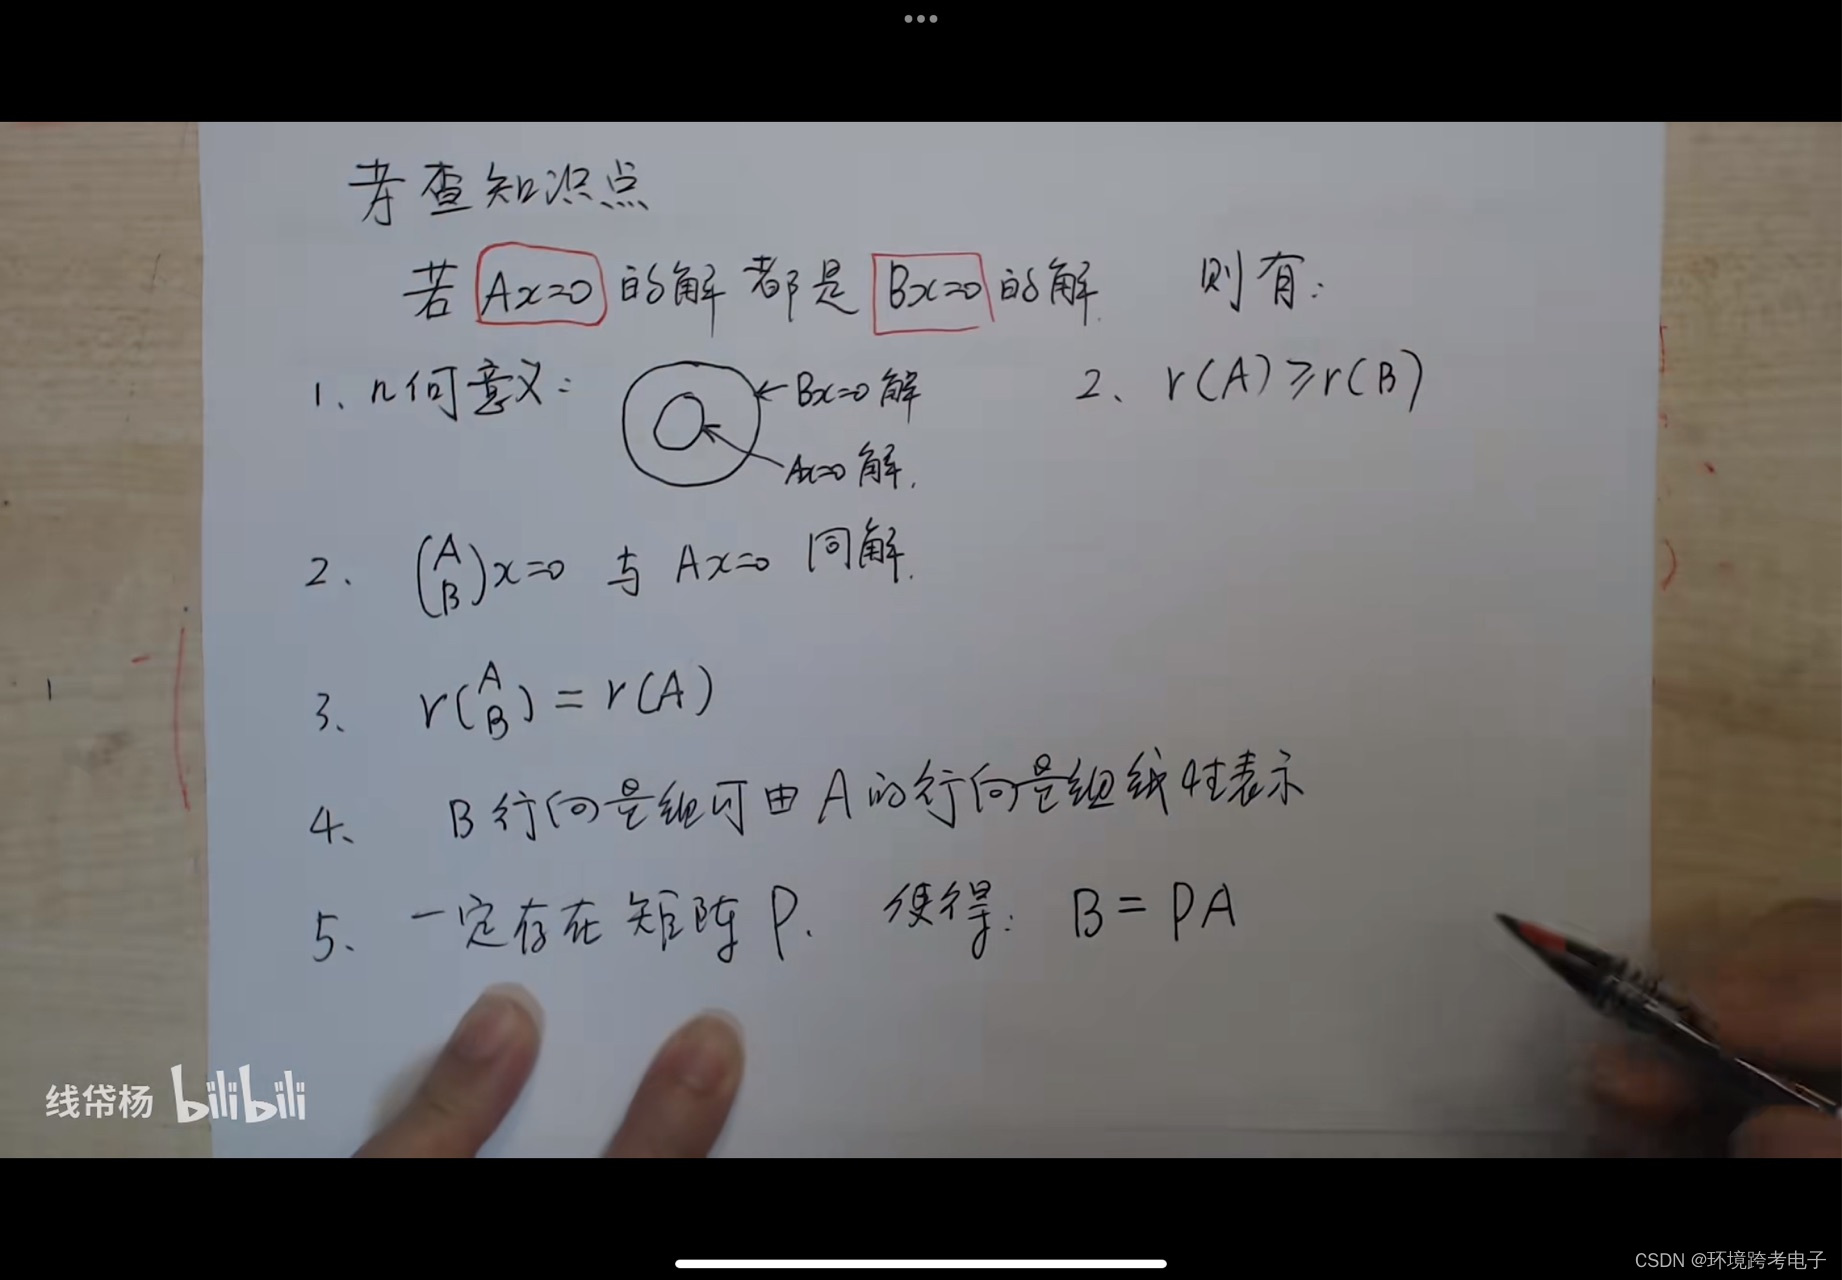 考查知识点
若 Ax=0 的解都是 Bx=0 的解. 则有:
1、几何意义: ←Bx=0解 2、r(A)≥r(B)
Ax=0解.
2. (A B)x=0 与 Ax=0 同解.
3、 r(A B) = r(A)
4、 B行向量组可由A的行向量组线性表示
5、 一定存在矩阵P. 使得: B=PA
线帒杨 bilibili
CSDN @环境跨考电子